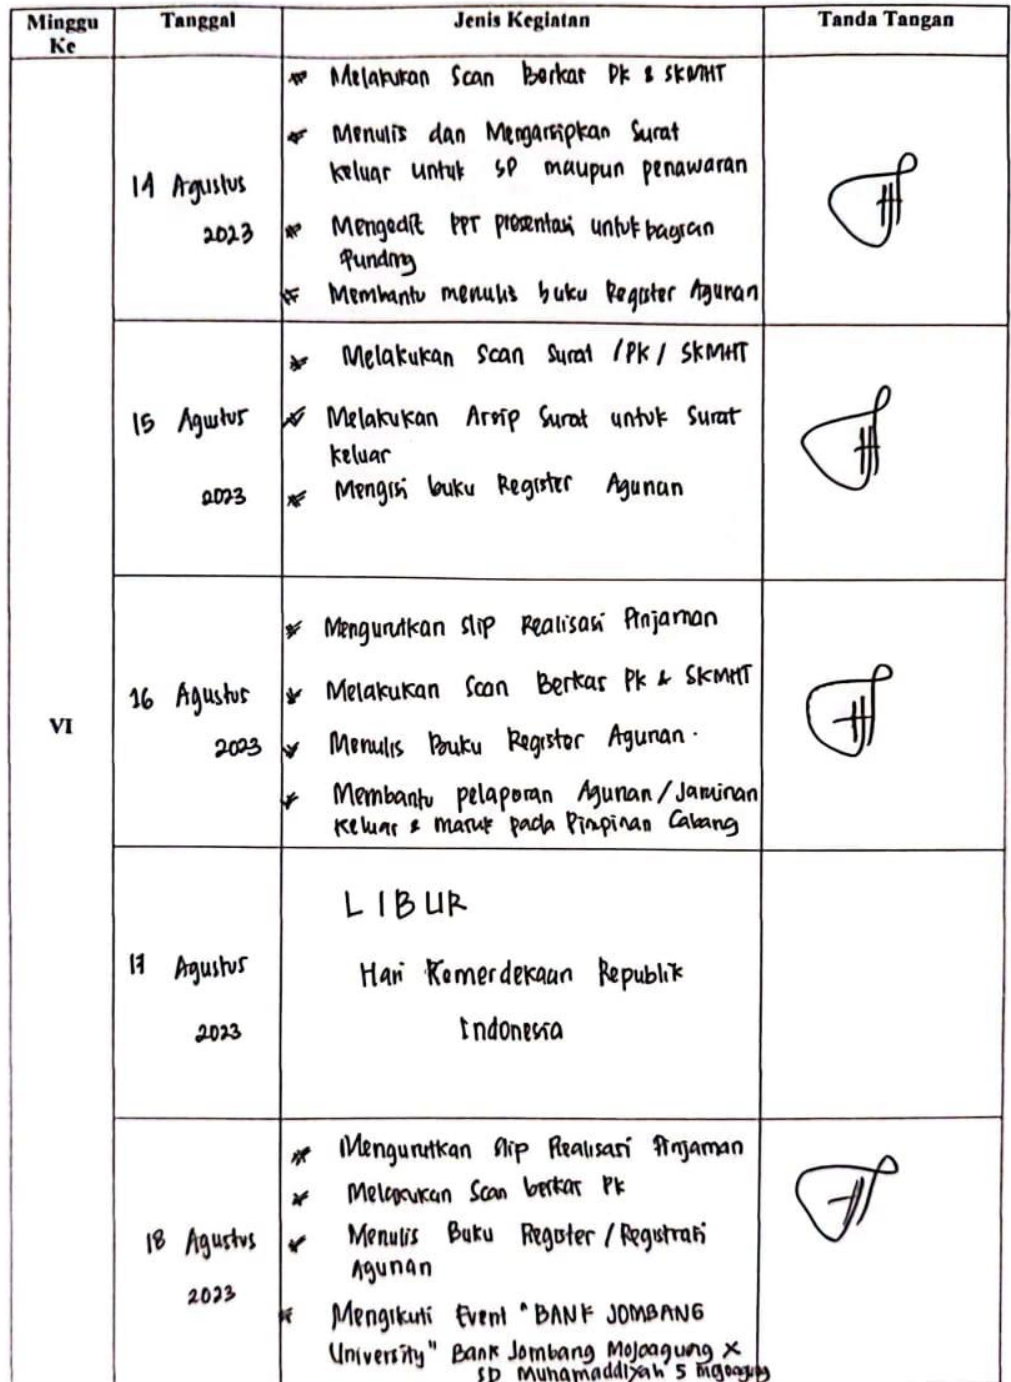 Minggu Ke Tanggal Jenis Kegiatan Tanda Tangan
VI
14 Agustus
2023
* Melakukan Scan Berkas PK & SKMHT
* Menulis dan Mengarsipkan Surat
keluar untuk SP maupun penawaran
* Mengedit PPT presentasi untuk bagian
Funding
* Membantu menulis buku Register Agunan
15 Agustus
2023
* Melakukan Scan Surat / PK / SKMHT
* Melakukan Arsip Surat untuk Surat
keluar
* Mengisi buku Register Agunan
16 Agustus
2023
* Mengurutkan Slip Realisasi Pinjaman
* Melakukan Scan Berkas PK & SKMHT
* Menulis Buku Register Agunan.
* Membantu pelaporan Agunan / Jaminan
Keluar & masuk pada Pimpinan Cabang
17 Agustus
2023
LIBUR
Hari Kemerdekaan Republik
Indonesia
18 Agustus
2023
* Mengurutkan Slip Realisasi Pinjaman
* Melakukan Scan berkas PK
* Menulis Buku Register / Registrasi
Agunan
* Mengikuti Event "BANK JOMBANG
University" Bank Jombang Mojoagung X
SD Muhamaddiyah 5